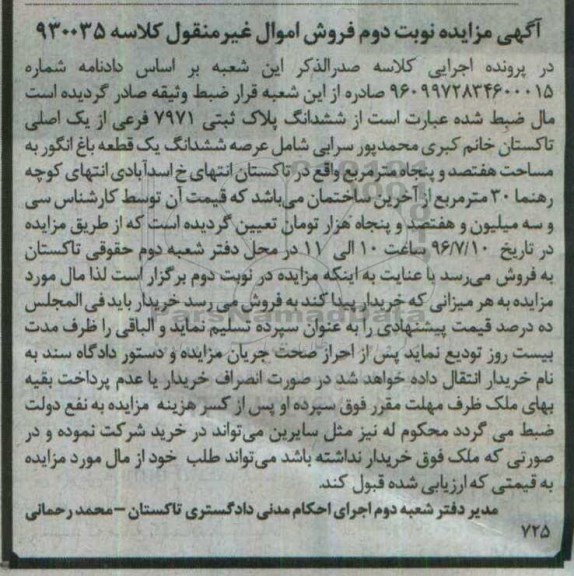 آگهی مزایده نوبت دوم فروش اموال غیرمنقول کلاسه ۹۳۰۰۳۵
در پرونده اجرایی کلاسه صدرالذکر این شعبه بر اساس دادنامه شماره
۹۶۰۹۹۷۲۸۳۴۶۰۰۰۱۵ صادره از این شعبه قرار ضبط وثیقه صادر گردیده است
مال ضبط شده عبارت است از ششدانگ پلاک ثبتی ۷۹۷۱ فرعی از یک اصلی
تاکستان خانم کبری محمدپور سرابی شامل عرصه ششدانگ یک قطعه باغ انگور به
مساحت هفتصد و پنجاه مترمربع واقع در تاکستان انتهای خ اسدآبادی انتهای کوچه
رهنما ۳۰ مترمربع از آخرین ساختمان می‌باشد که قیمت آن توسط کارشناس سی
و سه میلیون و هفتصد و پنجاه هزار تومان تعیین گردیده است که از طریق مزایده
در تاریخ ۹۶/۷/۱۰ ساعت ۱۰ الی ۱۱ در محل دفتر شعبه دوم حقوقی تاکستان
به فروش می‌رسد با عنایت به اینکه مزایده در نوبت دوم برگزار است لذا مال مورد
مزایده به هر میزانی که خریدار پیدا کند به فروش می رسد خریدار باید فی المجلس
ParsNamadData
ده درصد قیمت پیشنهادی را به عنوان سپرده تسلیم نماید و الباقی را ظرف مدت
بیست روز تودیع نماید پس از احراز صحت جریان مزایده و دستور دادگاه سند به
نام خریدار انتقال داده خواهد شد در صورت انصراف خریدار یا عدم پرداخت بقیه
بهای ملک ظرف مهلت مقرر فوق سپرده او پس از کسر هزینه مزایده به نفع دولت
ضبط می گردد محکوم له نیز مثل سایرین می‌تواند در خرید شرکت نموده و در
صورتی که ملک فوق خریدار نداشته باشد می‌تواند طلب خود از مال مورد مزایده
به قیمتی که ارزیابی شده قبول کند.
مدیر دفتر شعبه دوم اجرای احکام مدنی دادگستری تاکستان – محمد رحمانی
۷۲۵